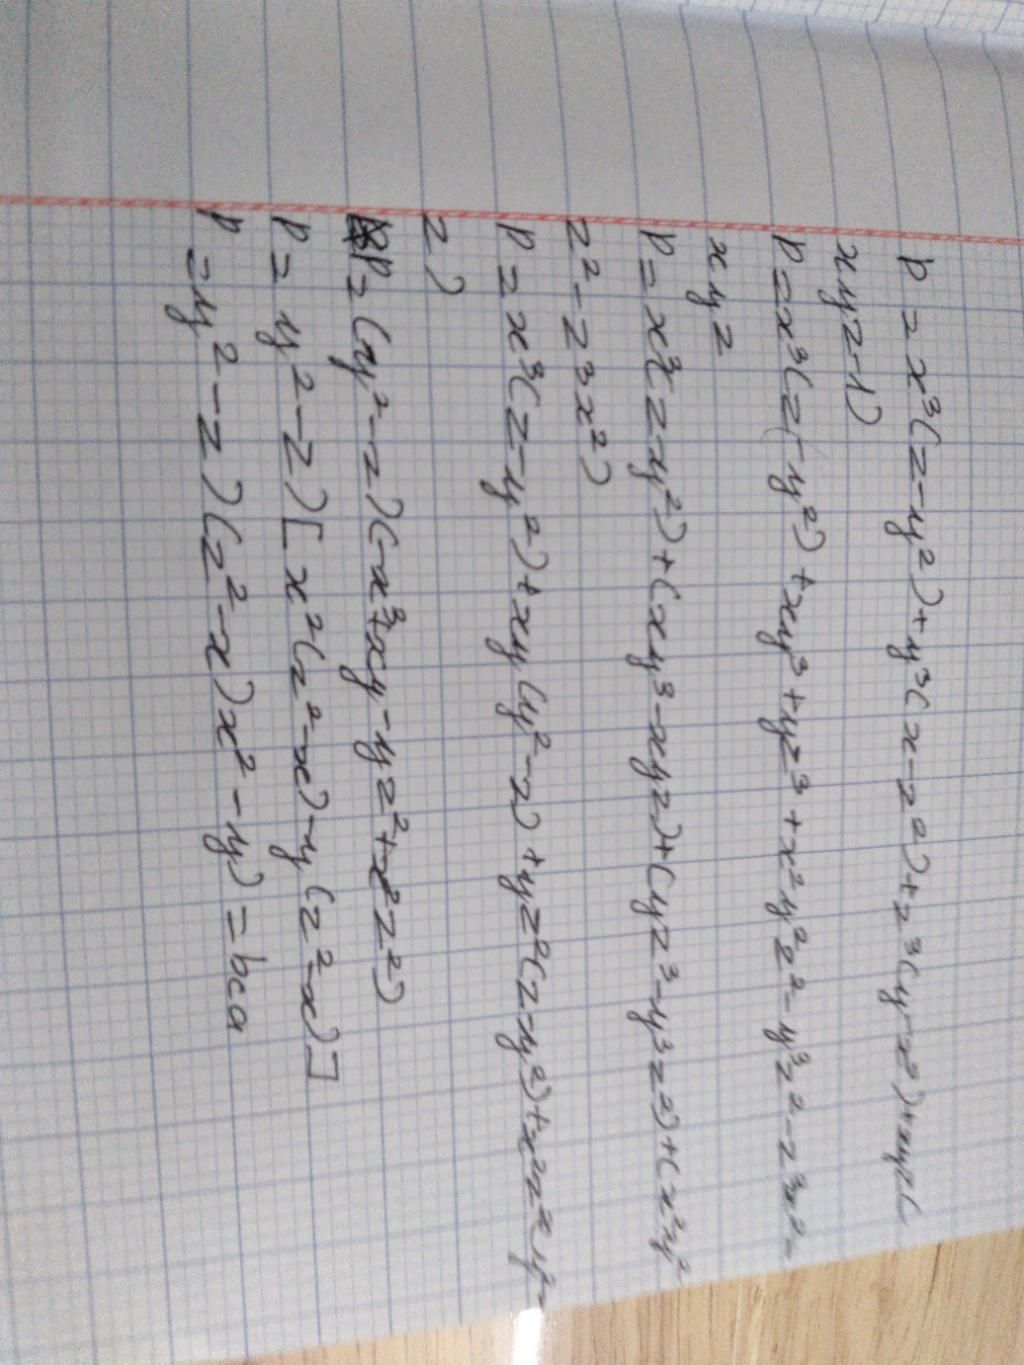 P = x³(z-y²)+y³(x-z²)+z³(y-x²)+xyz(
xyz-1)
P = x³(z-y²)+xy³+yz³+x²y²z²-y³z²-z³x²-
xyz
P = x³(z-y²)+(xy³-xyz)+(yz³-y³z²)+(x²y²
z²-z³x²)
P = x³(z-y²)+xy(y²-z)+yz²(z-y²)+x²z²(y²-
z)
P=(y²-z)(-x³+xy-yz²+x²z²)
P = y²-z)[x²(z²-x)-y(z²-x)]
P = y²-z)(z²-x)x²-y) = bca